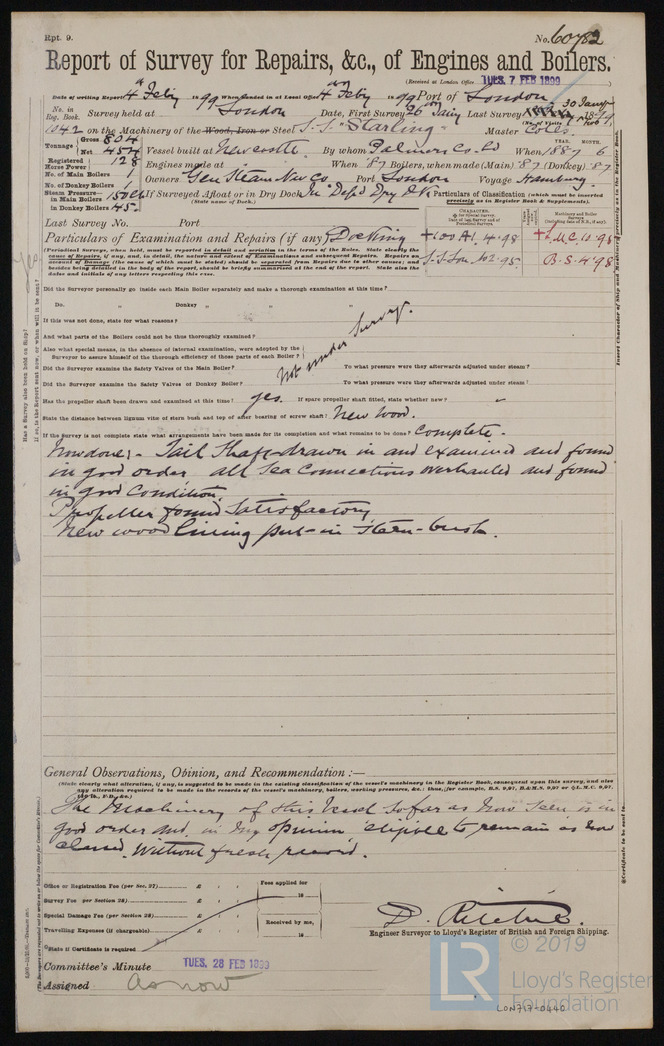 Rpt. 9.
No. 60782
Report of Survey for Repairs, &c., of Engines and Boilers.
(Received at London Office TUES. 7 FEB 1899
Date of writing Report 4th Feby 1899 When handed in at Local Office 4th Feby 1899 Port of London
No. in Reg. Book. Survey held at London Date, First Survey 26th Jany Last Survey
1042 on the Machinery of the Wood, Iron or Steel S.S. "Starling" Master Coles
Tonnage Gross 824 Net 457 Vessel built at Newcastle By whom Palmers Co. Ld When 1887 6
Registered Horse Power 128 Engines made at When '87 Boilers, when made (Main) '87 (Donkey) '87
No. of Main Boilers 1 Owners Gen Steam Nav Co Port London Voyage Hamburg
No. of Donkey Boilers 1
Steam Pressure in Main Boilers 150 lb If Surveyed Afloat or in Dry Dock In Dry Dk
in Donkey Boilers 45 (State name of Dock.)
Particulars of Classification (which must be inserted precisely as in Register Book & Supplements).
Last Survey No. Port
Particulars of Examination and Repairs (if any) Docking
+100 A1. 4.98
+L.M.C. 10.95
S.S. Lon. No2-95
B.S. 4.98
Did the Surveyor personally go inside each Main Boiler separately and make a thorough examination at this time?
Do. " Donkey " " "
If this was not done, state for what reasons?
And what parts of the Boilers could not be thus thoroughly examined?
Also what special means, in the absence of internal examination, were adopted by the Surveyor to assure himself of the thorough efficiency of those parts of each Boiler?
Not under Survey.
Did the Surveyor examine the Safety Valves of the Main Boiler? To what pressure were they afterwards adjusted under steam?
Did the Surveyor examine the Safety Valves of Donkey Boiler? To what pressure were they afterwards adjusted under steam?
Has the propeller shaft been drawn and examined at this time? yes. If spare propeller shaft fitted, state whether new? "
State the distance between lignum vitæ of stern bush and top of after bearing of screw shaft? New wood.
If the Survey is not complete state what arrangements have been made for its completion and what remains to be done? Complete.
Now done:- Tail Shaft drawn in and examined and found
in good order all Sea Connections overhauled and found
in good condition.
Propeller found Satisfactory
New wood lining put in Stern-bush.
General Observations, Opinion, and Recommendation:—
(State clearly what alteration, if any, is suggested to be made in the existing classification of the vessel's machinery in the Register Book, consequent upon this survey, and also
any alteration required to be made in the records of the vessel's machinery, boilers, working pressure, &c.: thus, for example, B.S. 9,97, B.&M.S. 9,97 or L.M.C. 9,97,
The Machinery of this Vessel so far as now seen is in
good order and in my opinion eligible to remain as now
classed. Without fresh record.
Office or Registration Fee (per Sec. 27) £ Fees applied for
Survey Fee per Section 28) £ 18
Special Damage Fee (per Section 28) £ Received by me,
Travelling Expenses (if chargeable) £ 18
State if Certificate is required
D. Ritchie.
Engineer Surveyor to Lloyd's Register of British and Foreign Shipping.
Committee's Minute TUES. 28 FEB 1899
Assigned As now
LR © 2019
Lloyd's Register
Foundation
LON717-0440